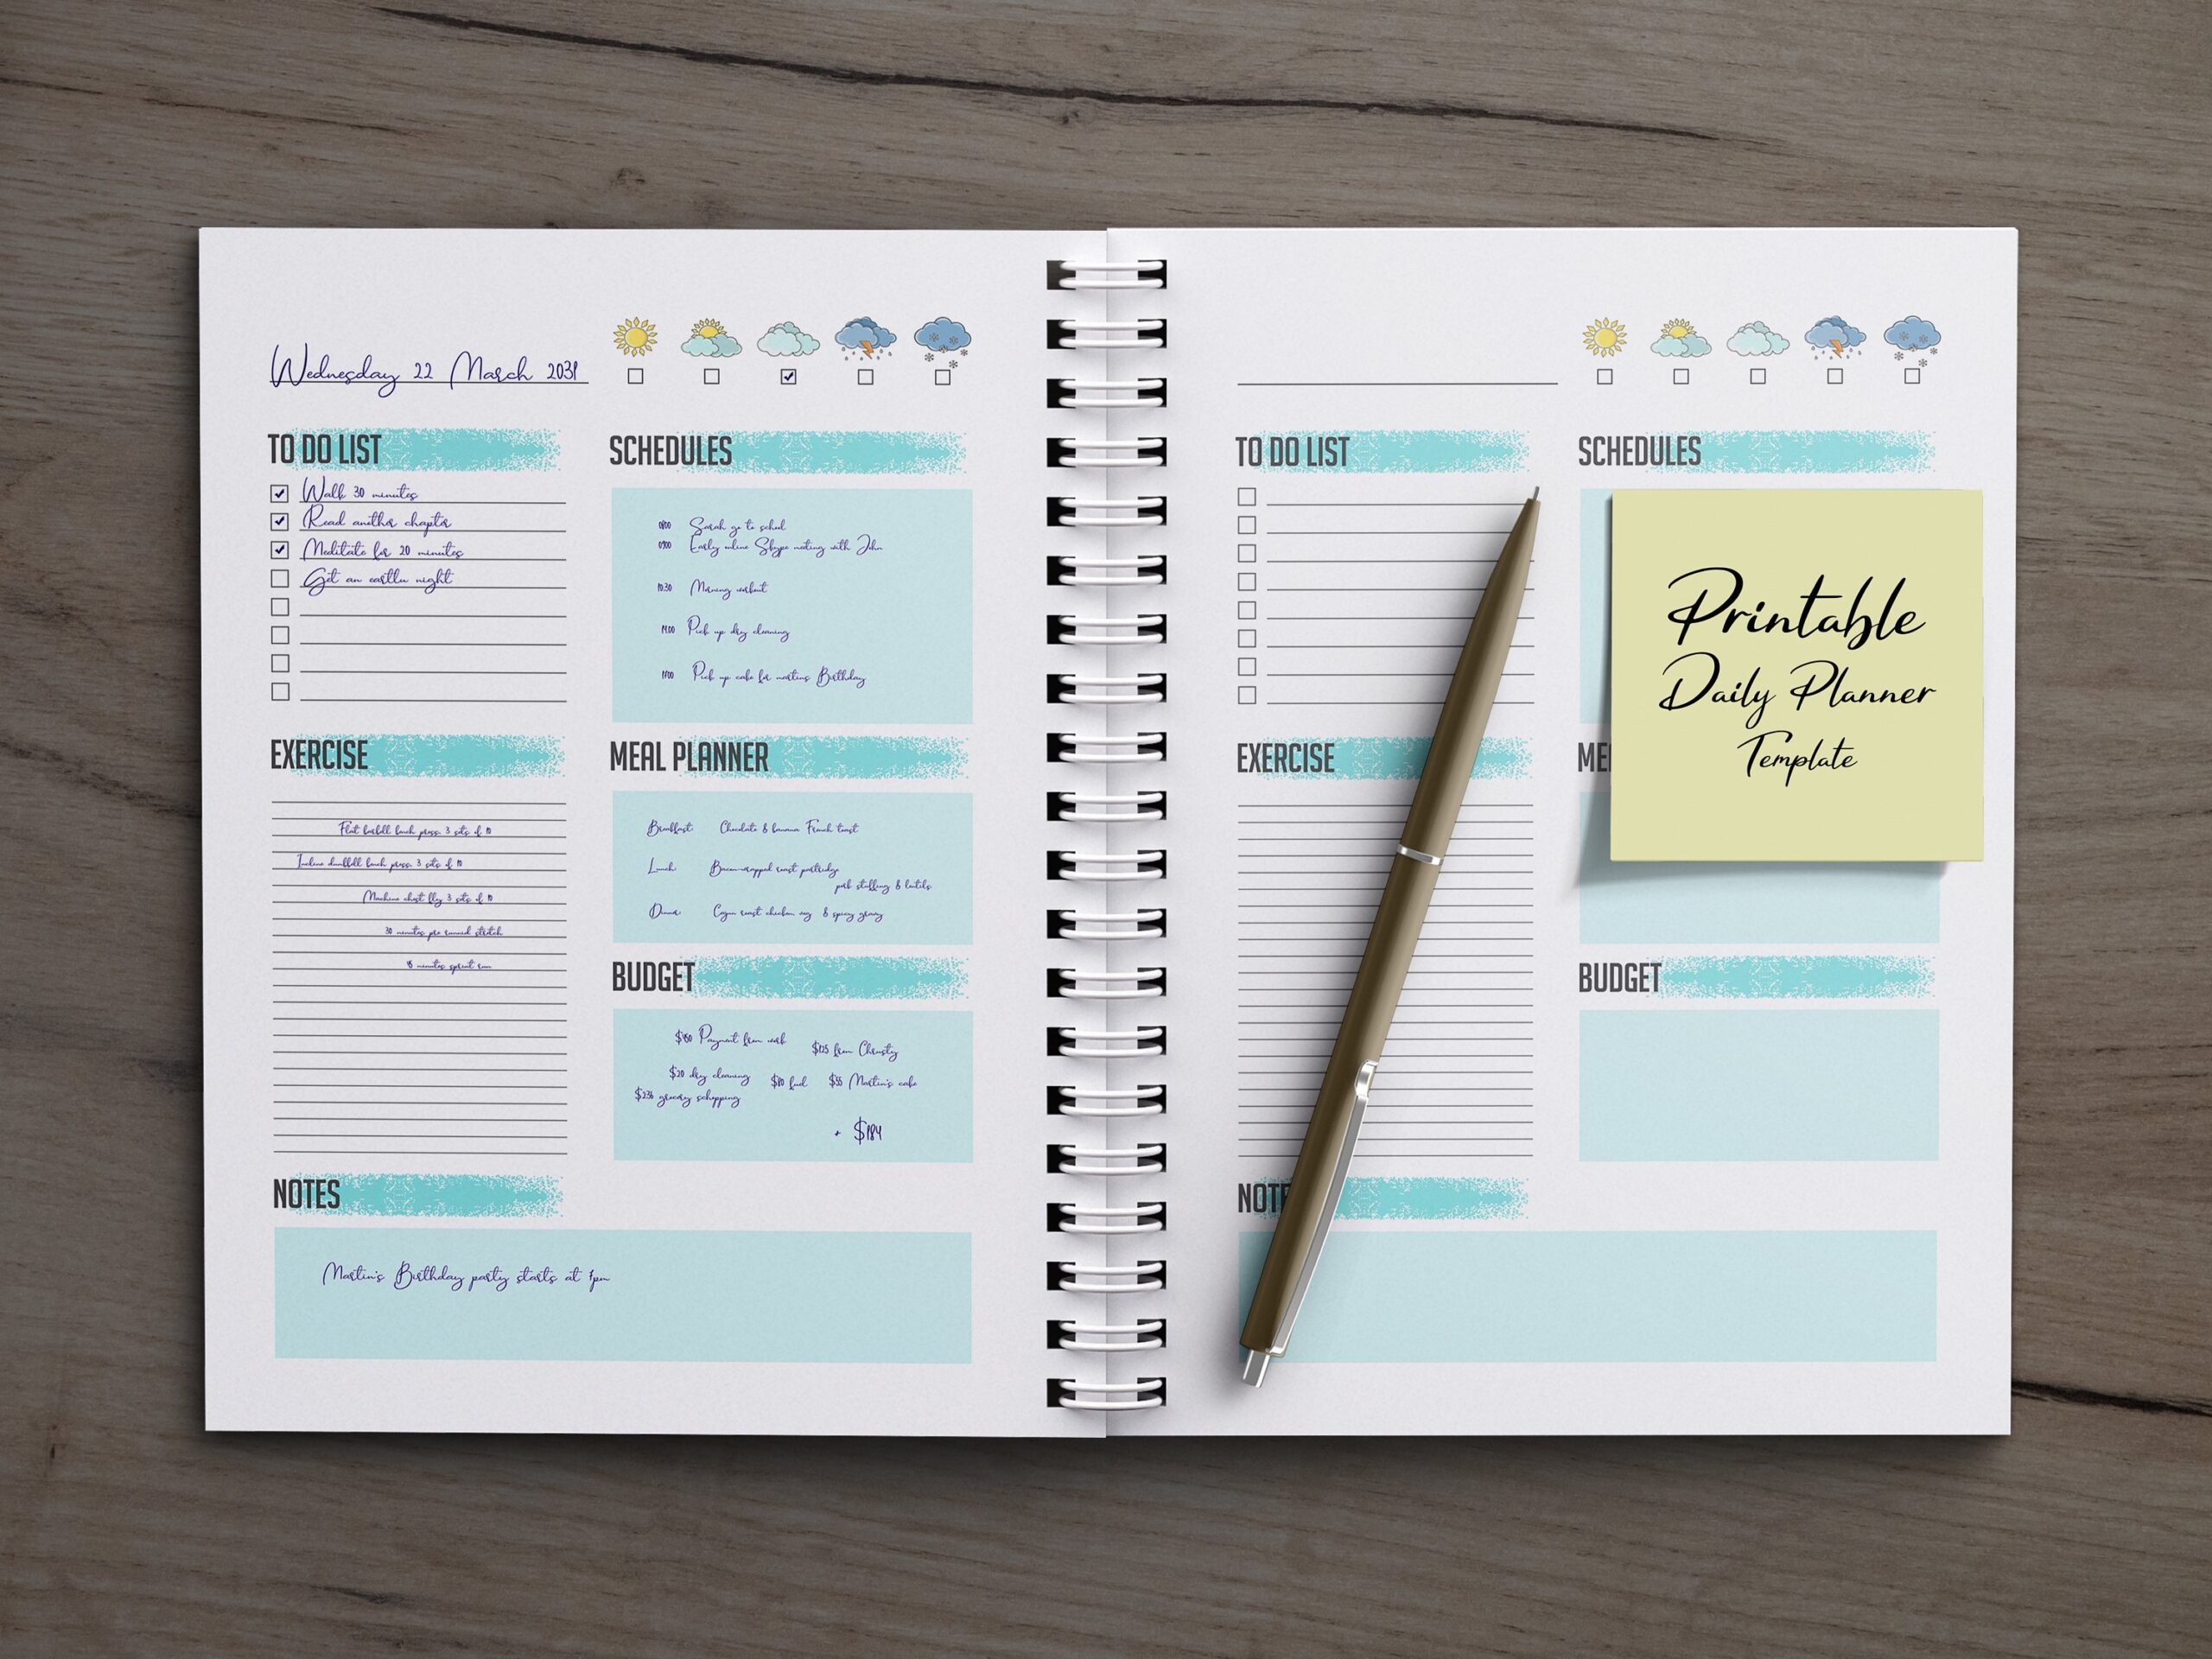 Wednesday 22 March 2031
TO DO LIST
Walk 30 minutes
Read another chapter
Meditate for 20 minutes
Get an eartlu night
SCHEDULES
0800 Sarah go to school
0900 Early online Skype meting with John
10.30 Morning workout
14.00 Pick up dry cleaning
Pick up cake for martins Birthday
EXERCISE
Flat barbell bench press. 3 sets of 10
Incline dumbbell bench press. 3 sets of 10
Machine chest fly 3 sets of 10
30 minutes pre runned stretch
minutes sprint run
MEAL PLANNER
Breakfast: Chocolate & banana French toast
Lunch: Bacon-wrapped roast partridge
pork stuffing & lentils
Dinner: Cajun roast chicken & spicy gravy
BUDGET
Payment from work
$125 from Christy
$20 dry cleaning $80 fuel $55 Martin's cake
$236 grocery schopping
+ $184
NOTES
Martin's Birthday party starts at
TO DO LIST
SCHEDULES
Printable
Daily Planner
Template
EXERCISE
ME
BUDGET
NOTE